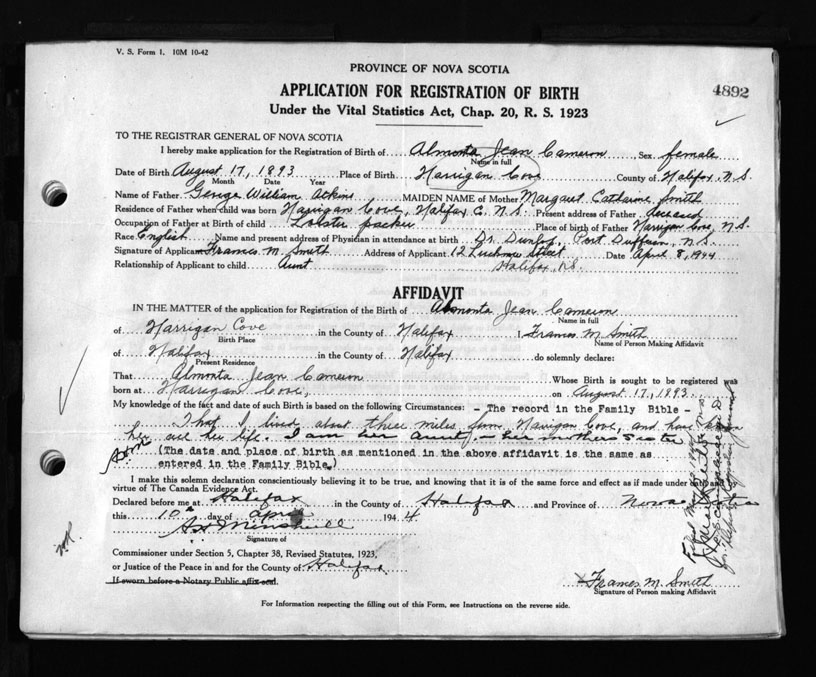 V. S. Form 1. 10M 10-42
PROVINCE OF NOVA SCOTIA
APPLICATION FOR REGISTRATION OF BIRTH
4892
Under the Vital Statistics Act, Chap. 20, R. S. 1923
TO THE REGISTRAR GENERAL OF NOVA SCOTIA
I hereby make application for the Registration of Birth of Almonta Jean Cameron Sex female
Name in full
Date of Birth August 17, 1893 Place of Birth Harrigan Cove County of Halifax, N.S.
Month Date Year
Name of Father George William Atkins MAIDEN NAME of Mother Margaret Catharine Smith
Residence of Father when child was born Harrigan Cove, Halifax C. N.S. Present address of Father deceased
Occupation of Father at Birth of child Lobster packer Place of birth of Father Harrigan Cove, N.S.
Race English Name and present address of Physician in attendance at birth Dr. Dunlop, Port Dufferin, N.S.
Signature of Applicant Frances M. Smith Address of Applicant 12 Street Date April 8, 1944
Relationship of Applicant to child Aunt Halifax, N.S.
AFFIDAVIT
IN THE MATTER of the application for Registration of the Birth of Almonta Jean Cameron
Name in full
of Harrigan Cove in the County of Halifax I, Frances M. Smith
Birth Place Name of Person Making Affidavit
of Halifax in the County of Halifax do solemnly declare:
Present Residence
That Almonta Jean Cameron Whose Birth is sought to be registered was
born at Harrigan Cove, on August 17, 1893
My knowledge of the fact and date of such Birth is based on the following Circumstances: - The record in the Family Bible -
That I lived about three miles from Harrigan Cove, and have known
her all her life. I am her Aunt - her mothers sister
(The date and place of birth as mentioned in the above affidavit is the same as
entered in the Family Bible.)
I make this solemn declaration conscientiously believing it to be true, and knowing that it is of the same force and effect as if made under oath and
virtue of The Canada Evidence Act.
Declared before me at Halifax in the County of Halifax and Province of Nova Scotia
this 10th day of April 1944.
Signature of
Commissioner under Section 5, Chapter 38, Revised Statutes, 1923,
or Justice of the Peace in and for the County of Halifax
If sworn before a Notary Public affix seal.
Frances M. Smith
Signature of Person making Affidavit
For Information respecting the filling out of this Form, see Instructions on the reverse side.